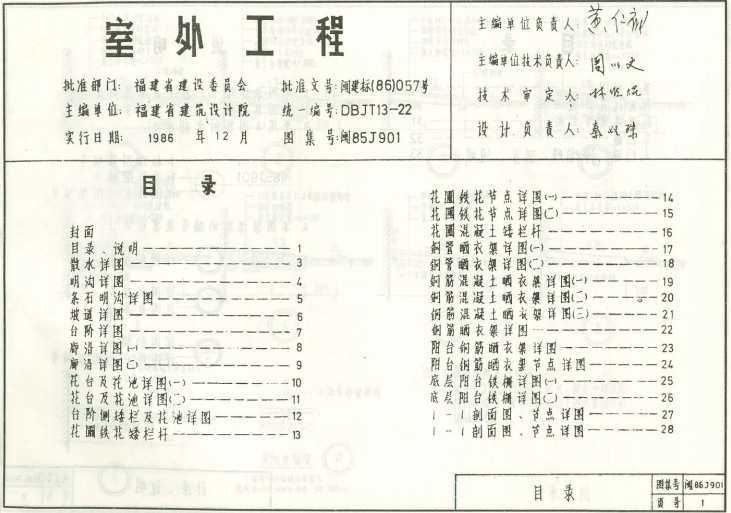 室外工程
批准部门: 福建省建设委员会 批准文号: 闽建标(86)057号
主编单位: 福建省建筑设计院 统一编号: DBJT13-22
实行日期: 1986 年 12 月 图集号: 闽85J901
主编单位负责人:
主编单位技术负责人:
技术审定人:
设计负责人:
目录
封面
目录、说明 1
散水详图 3
明沟详图 4
条石明沟详图 5
坡道详图 6
台阶详图 7
廊沿详图(一) 8
廊沿详图(二) 9
花台及花池详图(一) 10
花台及花池详图(二) 11
台阶侧矮栏及花池详图 12
花圃铁花矮栏杆 13
花圃铁花节点详图(一) 14
花圃铁花节点详图(二) 15
花圃混凝土矮栏杆 16
钢管晒衣架详图(一) 17
钢管晒衣架详图(二) 18
钢筋混凝土晒衣架详图(一) 19
钢筋混凝土晒衣架详图(二) 20
钢筋混凝土晒衣架详图(三) 21
钢筋晒衣架详图 22
阳台钢筋晒衣架详图 23
阳台钢筋晒衣架节点详图 24
底层阳台铁栅详图(一) 25
底层阳台铁栅详图(二) 26
1-1剖面图、节点详图 27
1-1剖面图、节点详图 28
目录 图集号 闽85J901
页号 1